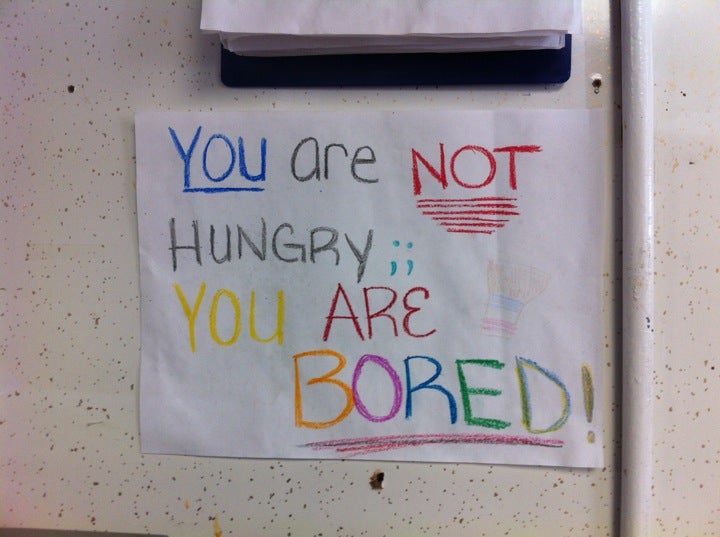 YOU are NOT
HUNGRY;;
YOU ARE
BORED!